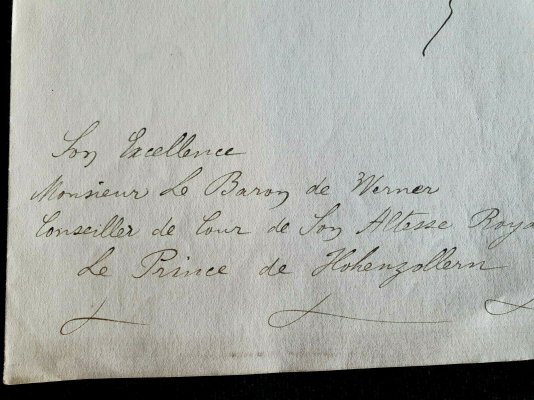 Son Excellence
Monsieur Le Baron de Werner
Conseiller de Cour de Son Altesse Roya
Le Prince de Hohenzollern